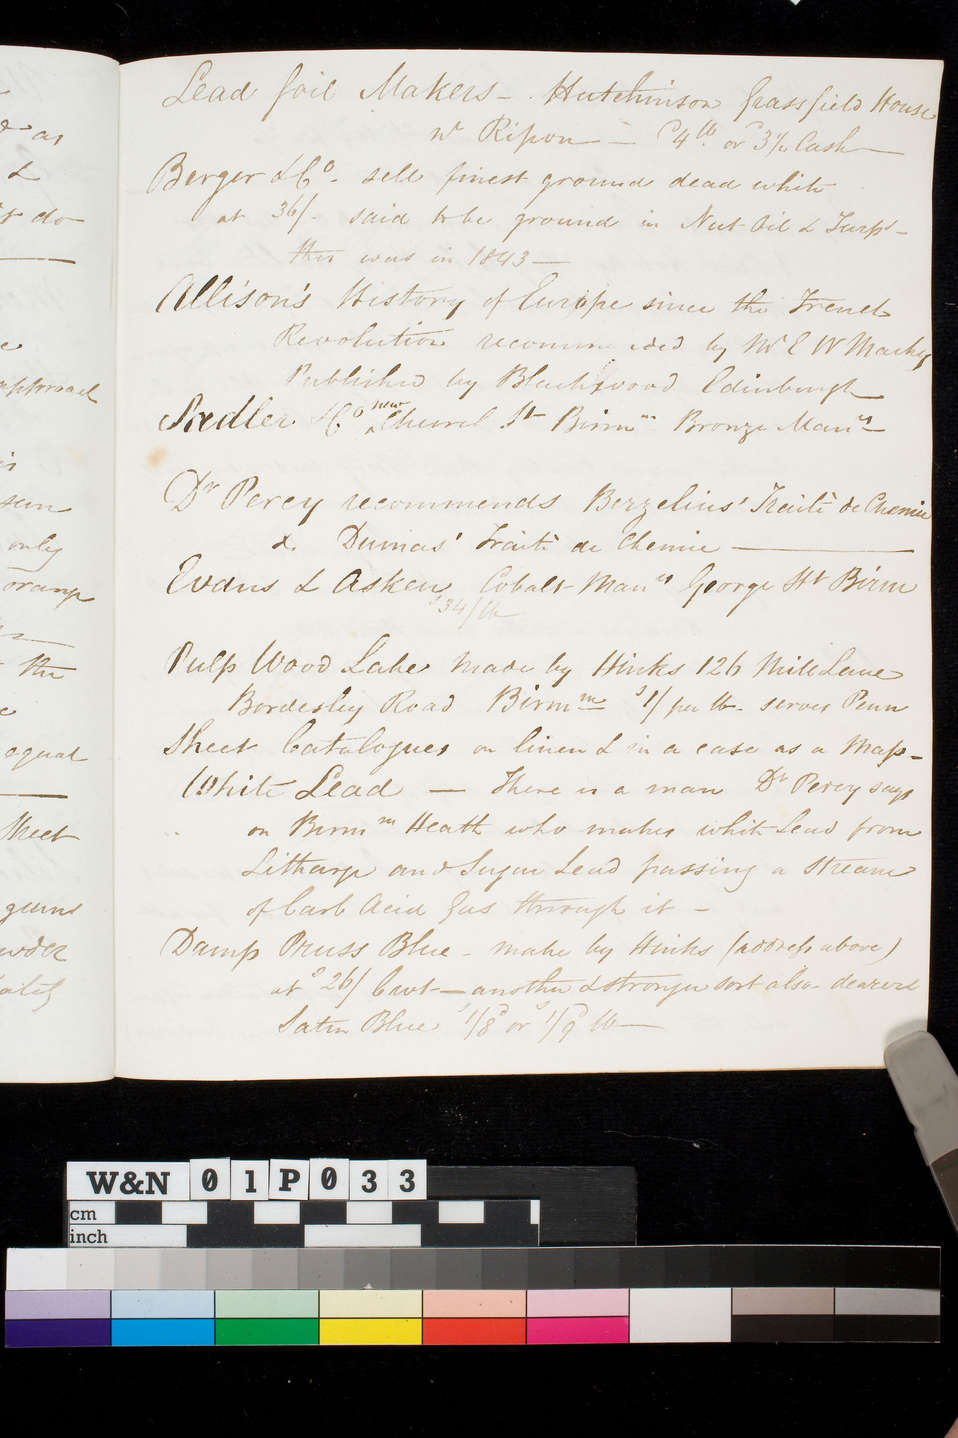 Lead foil Makers - Hutchinson Grassfield House
nr Ripon - 4th or 3½ Cash
Berger & Co. sell finest ground dead white
at 36/- said to be ground in Nut Oil & Turps -
this was in 1843 -
Allison's History of Europe since the French
Revolution recommended by Mr E W Mackey
Published by Blackwood Edinburgh
& Co new Church St Birmm Bronze Manrs
Dr Percy recommends Berzelius' Traité de Chemie
& Dumas' Traité de Chemie
Evans & Askew Cobalt Manrs George St Birm
34/ lb
Pulp Wood Lake made by Hinks 126 Mile Lane
Bordesley Road Birmm 1/ per lb. serves Penn
Sheet Catalogues on linen & in a case as a Map -
White Lead - There is a man Dr Percy says
on Birmm Heath who makes white Lead from
Litharge and Sugar Lead passing a stream
of Carb Acid Gas through it -
Damp Pruss Blue - make by Hinks (address above)
at 26/ Cwt - another & stronger sort also dearer &
Satin Blue 1/8d or 1/9 lb -
as
&
do
approach
seen
only
orange
the
equal
sheet
gums
W&N 01P033
cm
inch